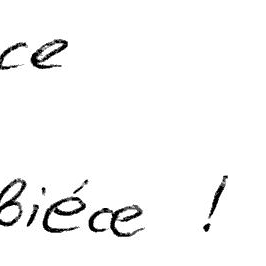 ce
biéce !